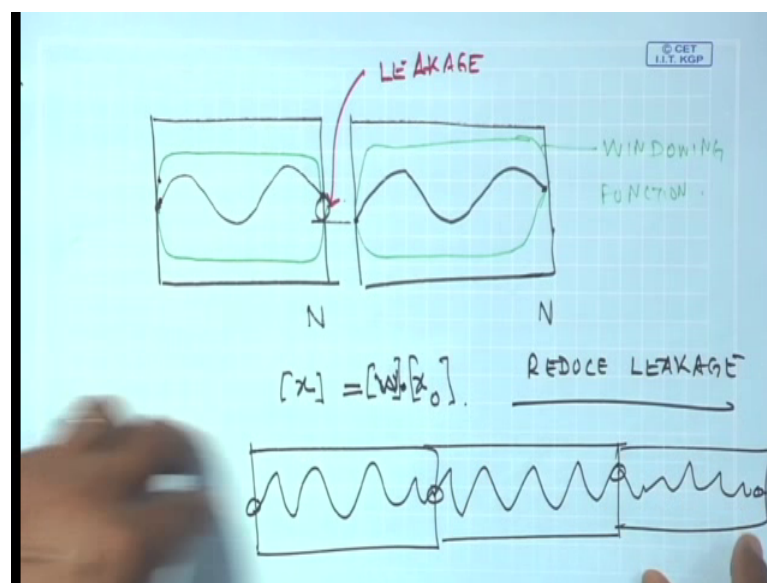 © CET
I.I.T. KGP
LEAKAGE
WINDOWING
FUNCTION.
N
N
[x] = [W].[x₀].
REDUCE LEAKAGE